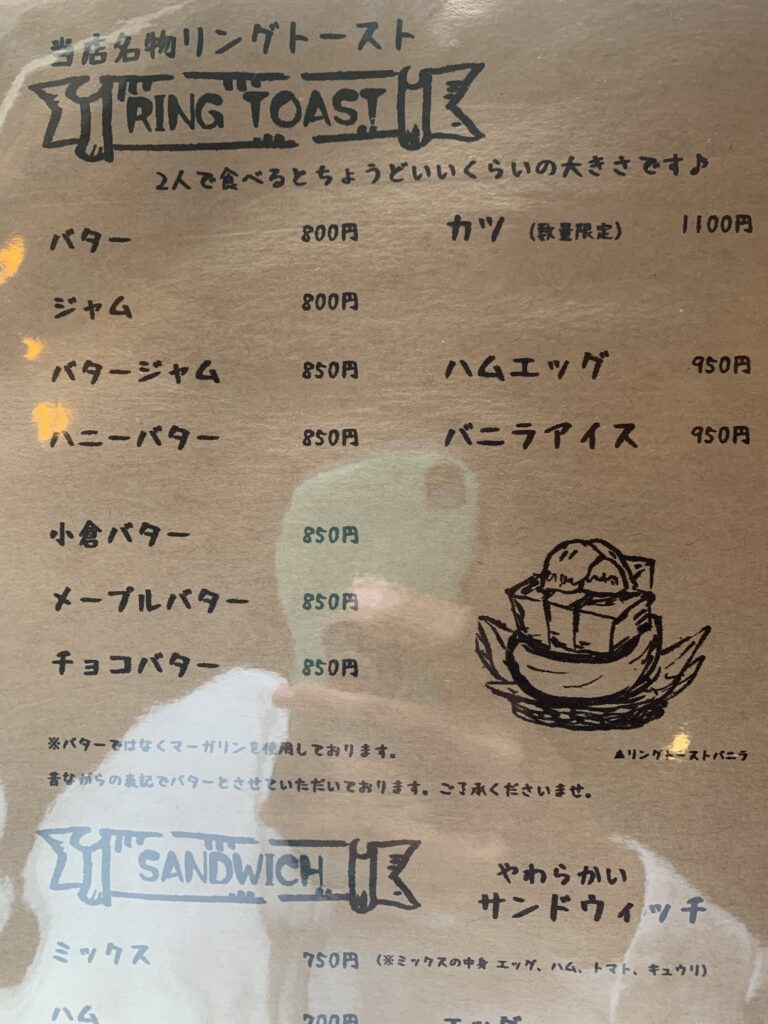 当店名物リングトースト
RING TOAST
2人で食べるとちょうどいいくらいの大きさです♪
バター 800円
カツ (数量限定) 1100円
ジャム 800円
バタージャム 850円
ハムエッグ 950円
ハニーバター 850円
バニラアイス 950円
小倉バター 850円
メープルバター 850円
チョコバター 850円
▲リングトーストバニラ
※バターではなくマーガリンを使用しております。
昔ながらの表記でバターとさせていただいております。ご了承くださいませ。
SANDWICH
やわらかい
サンドウィッチ
ミックス 750円 (※ミックスの中身 エッグ、ハム、トマト、キュウリ)
ハム 700円
エッグ